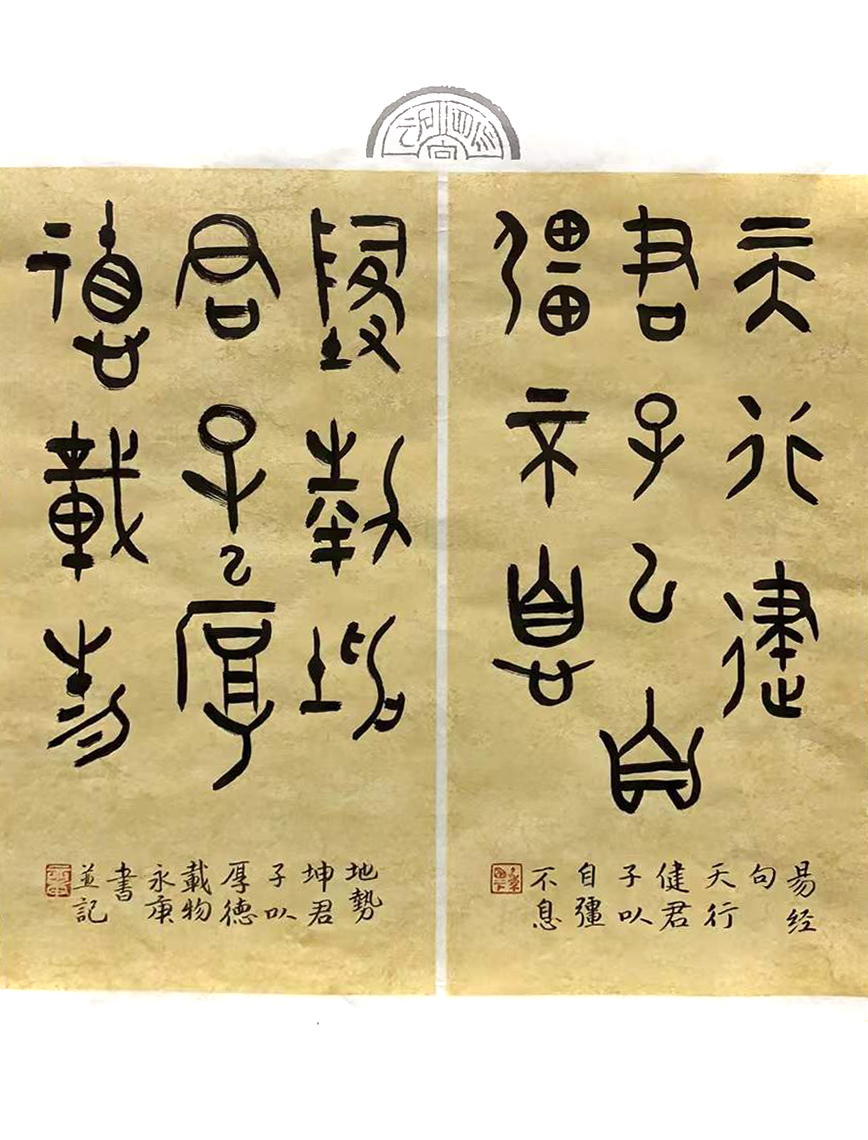 天行健
君子以自
彊不息
易经
句
天行
健君
子以
自彊
不息
地勢坤
君子以厚
德載物
地勢
坤君
子以
厚德
載物
永庚
書
並記